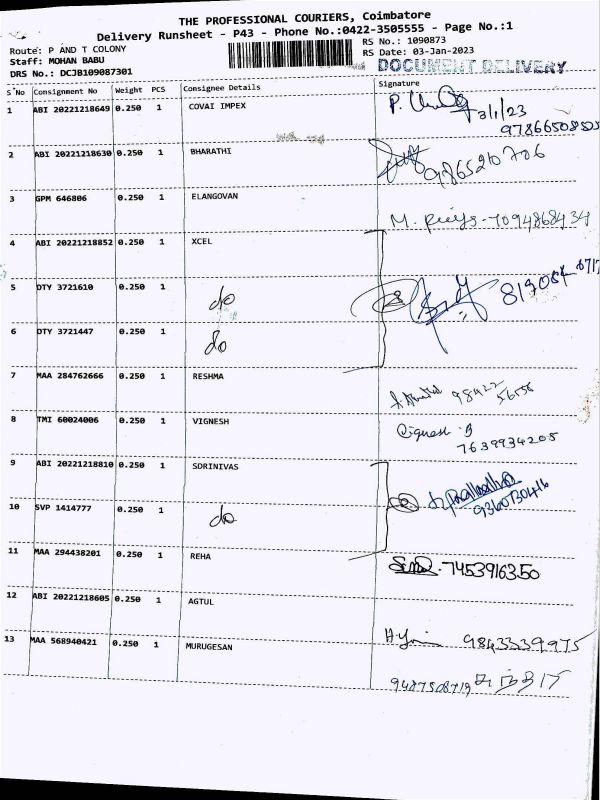 THE PROFESSIONAL COURIERS, Coimbatore
Delivery Runsheet - P43 - Phone No.:0422-3505555 - Page No.:1
Route: P AND T COLONY
RS No.: 1090873
Staff: MOHAN BABU
RS Date: 03-Jan-2023
DRS No.: DCJB109087301
DOCUMENT DELIVERY
S No Consignment No Weight PCS Consignee Details Signature
1 ABI 20221218649 0.250 1 COVAI IMPEX
3/1/23
2 ABI 20221218630 0.250 1 BHARATHI
9865210706
3 GPM 646806 0.250 1 ELANGOVAN
M. 7094868434
4 ABI 20221218852 0.250 1 XCEL
5 DTY 3721610 0.250 1 do
6 DTY 3721447 0.250 1 do
7 MAA 284762666 0.250 1 RESHMA
98422 56556
8 TMI 60024006 0.250 1 VIGNESH
Vignesh B
7639934205
9 ABI 20221218810 0.250 1 SDRINIVAS
10 SVP 1414777 0.250 1 do
9360730416
11 MAA 294438201 0.250 1 REHA
7453916350
12 ABI 20221218605 0.250 1 AGTUL
9843339975
13 MAA 568940421 0.250 1 MURUGESAN
9487508719